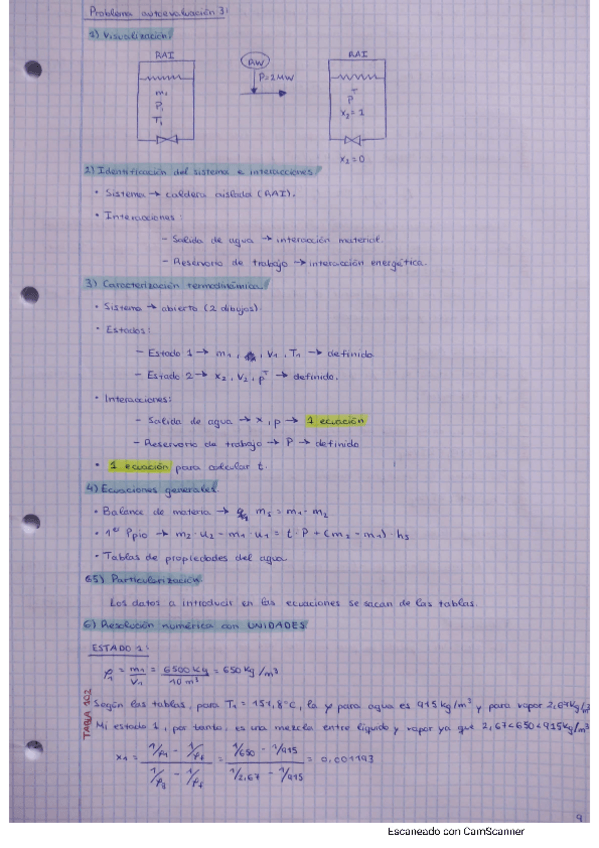 Problema autoevaluación 3:
1) Visualización
RAI
AW
RAI
P=2MW
m₁
P₁
T₁
P
x₂=1
x₂=0
2) Identificación del sistema e interacciones
• Sistema → caldera aislada (RAI).
• Interacciones
– Salida de agua → interacción material.
– Reservorio de trabajo → interacción energética.
3) Caracterización termodinámica.
• Sistema → abierto (2 dibujos)
• Estados:
– Estado 1 → m₁, V₁, T₁ → definido
– Estado 2 → x₂, V₂, p → definido.
• Interacciones:
– Salida de agua → x, p → 1 ecuación
– Reservorio de trabajo → P → definido
• 1 ecuación para calcular t.
4) Ecuaciones generales
• Balance de materia → m₃ = m₁ - m₂
• 1er Ppio → m₂·u₂ - m₁·u₁ = t·P + (m₂ - m₁)·h₃
• Tablas de propiedades del agua
5) Particularización
Los datos a introducir en las ecuaciones se sacan de las tablas.
6) Resolución numérica con UNIDADES
ESTADO 1:
ρ₁ = m₁/V₁ = 6500 kg/10 m³ = 650 kg/m³
TABLA 102
Según las tablas, para T₁ = 151,8°C, la ρ para agua es 915 kg/m³ y para vapor 2,67kg/
Mi estado 1, por tanto, es una mezcla entre líquido y vapor ya que 2,67<650<915kg/m³
x₁ = (1/ρ₁ - 1/ρf)/(1/ρg - 1/ρf) = (1/650 - 1/915)/(1/2,67 - 1/915) = 0,001193
9
Escaneado con CamScanner